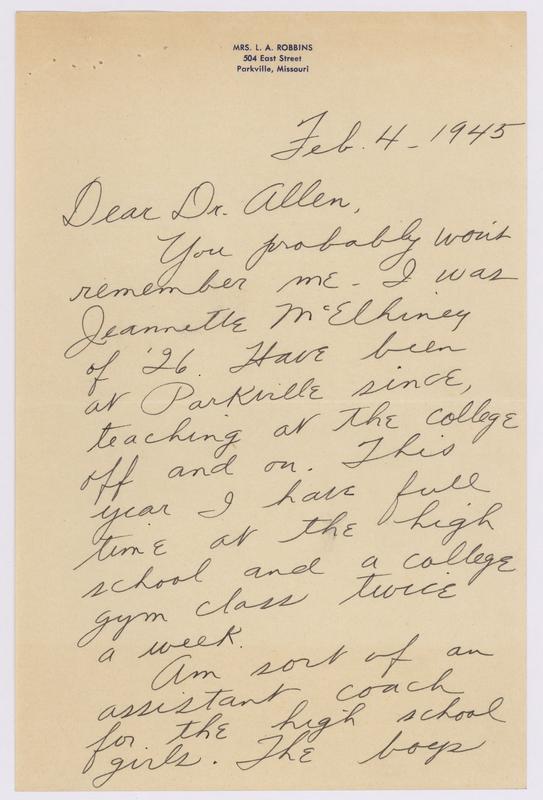 MRS. L. A. ROBBINS
504 East Street
Parkville, Missouri
Feb. 4 - 1945
Dear Dr. Allen,
You probably won't
remember me - I was
Jeannette McElhiney
of '26. Have been
at Parkville since,
teaching at the college
off and on. This
year I have full
time at the high
school and a college
gym class twice
a week.
Am sort of an
assistant coach
for the high school
girls. The boys